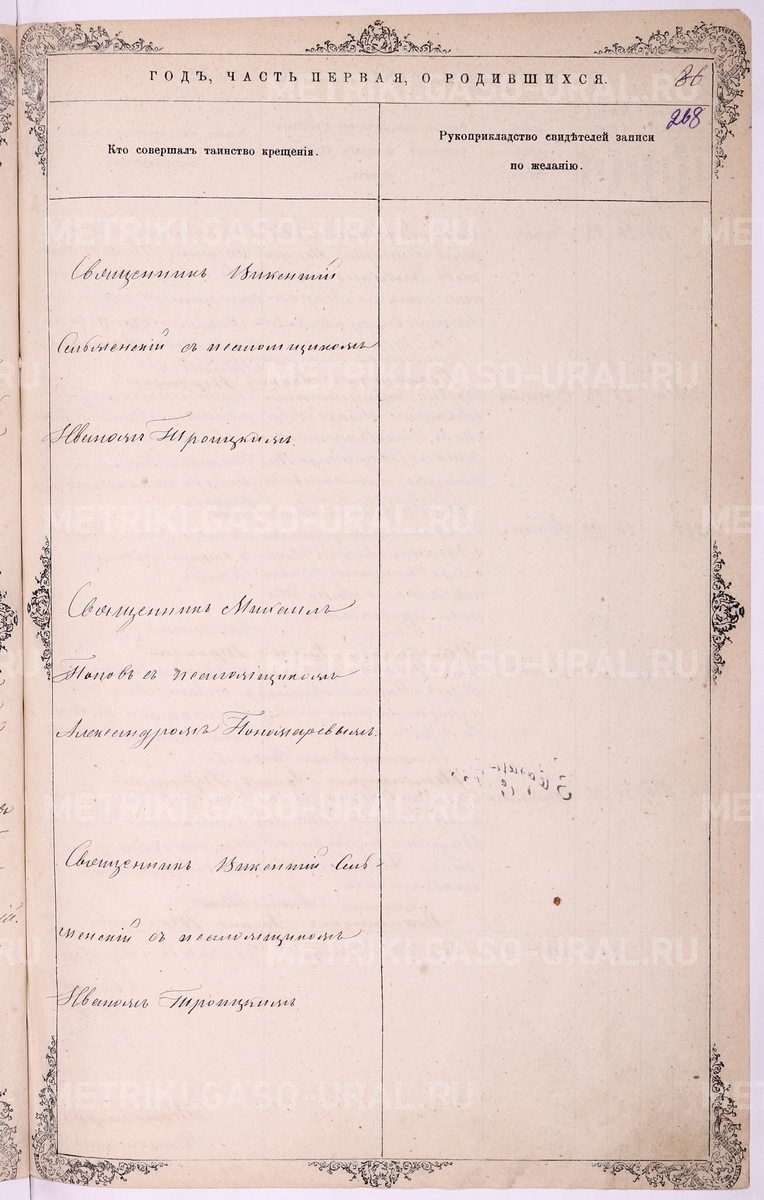 ГОДЪ, ЧАСТЬ ПЕРВАЯ, О РОДИВШИХСЯ.
36
268
Кто совершалъ таинство крещенія.
Рукоприкладство свидѣтелей записи
по желанію.
Священникъ Викентій
съ псаломщикомъ
Иваномъ Троицкимъ.
Священникъ Михаилъ
Поповъ съ псаломщикомъ
Александромъ Пономаревымъ.
Священникъ Викентій
съ псаломщикомъ
Иваномъ Троицкимъ
METRIKI.GASO-URAL.RU